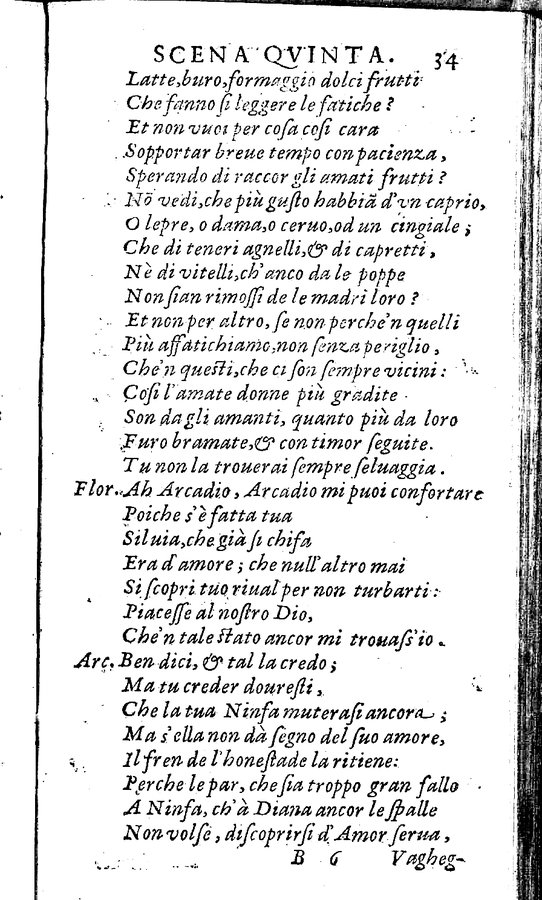 SCENA QVINTA. 34
Latte,buro,formaggio dolci frutti
Che fanno ſi leggere le fatiche?
Et non vuoi per coſa coſi cara
Sopportar breue tempo con pacienza,
Sperando di raccor gli amati frutti?
Nõ vedi,che più guſto habbiã d'vn caprio,
O lepre, o dama,o ceruo,od un cingiale;
Che di teneri agnelli,& di capretti,
Nè di vitelli,ch'anco da le poppe
Non ſian rimoſſi de le madri loro?
Et non per altro, ſe non perche'n quelli
Più affatichiamo,non ſenza periglio,
Che'n queſti,che ci ſon ſempre vicini:
Coſi l'amate donne più gradite
Son dagli amanti, quanto più da loro
Furo bramate,& con timor ſeguite.
Tu non la trouerai ſempre ſeluaggia.
Flor. Ah Arcadio, Arcadio mi puoi confortare
Poiche s'è fatta tua
Siluia,che già ſi chifa
Era d'amore; che null'altro mai
Si ſcopri tuo riual per non turbarti:
Piaceſſe al noſtro Dio,
Che'n tale ſtato ancor mi trouaſſ'io.
Arc. Ben dici, & tal la credo;
Ma tu creder doureſti,
Che la tua Ninfa muteraſi ancora;
Ma s'ella non dà ſegno del ſuo amore,
Il fren de l'honeſtade la ritiene:
Perche le par, che ſia troppo gran fallo
A Ninfa, ch'à Diana ancor le ſpalle
Non volſe, diſcoprirſi d'Amor ſerua,
B 6 Vagheg-